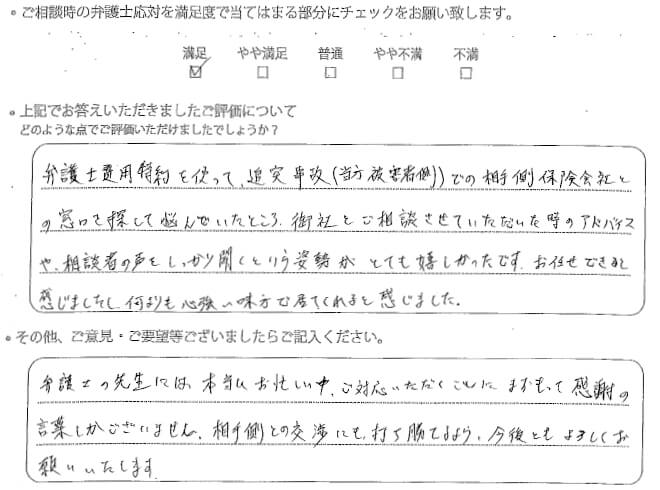 ・ご相談時の弁護士応対を満足度で当てはまる部分にチェックをお願い致します。
満足 やや満足 普通 やや不満 不満
☑ □ □ □ □
・上記でお答えいただきましたご評価について
どのような点でご評価いただけましたでしょうか？
弁護士費用特約を使って、追突事故(当方被害者側)での相手側保険会社と
の窓口を探して悩んでいたところ、御社とご相談させていただいた時のアドバイス
や、相談者の声をしっかり聞くという姿勢がとても嬉しかったです。お任せできると
感じましたし、何よりも心強い味方で居てくれると感じました。
・その他、ご意見・ご要望等ございましたらご記入ください。
弁護士の先生には、本当にお忙しい中、ご対応いただくことにまずもって感謝の
言葉しかございません。相手側との交渉にも、打ち勝てるよう、今後ともよろしくお
願いいたします。